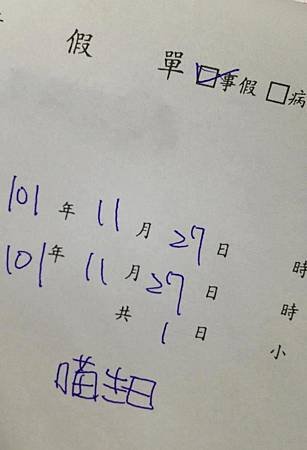 假 單 ☑事假 □病
101 年 11 月 27 日 時
101 年 11 月 27 日 時
共 1 日 小
喵生日